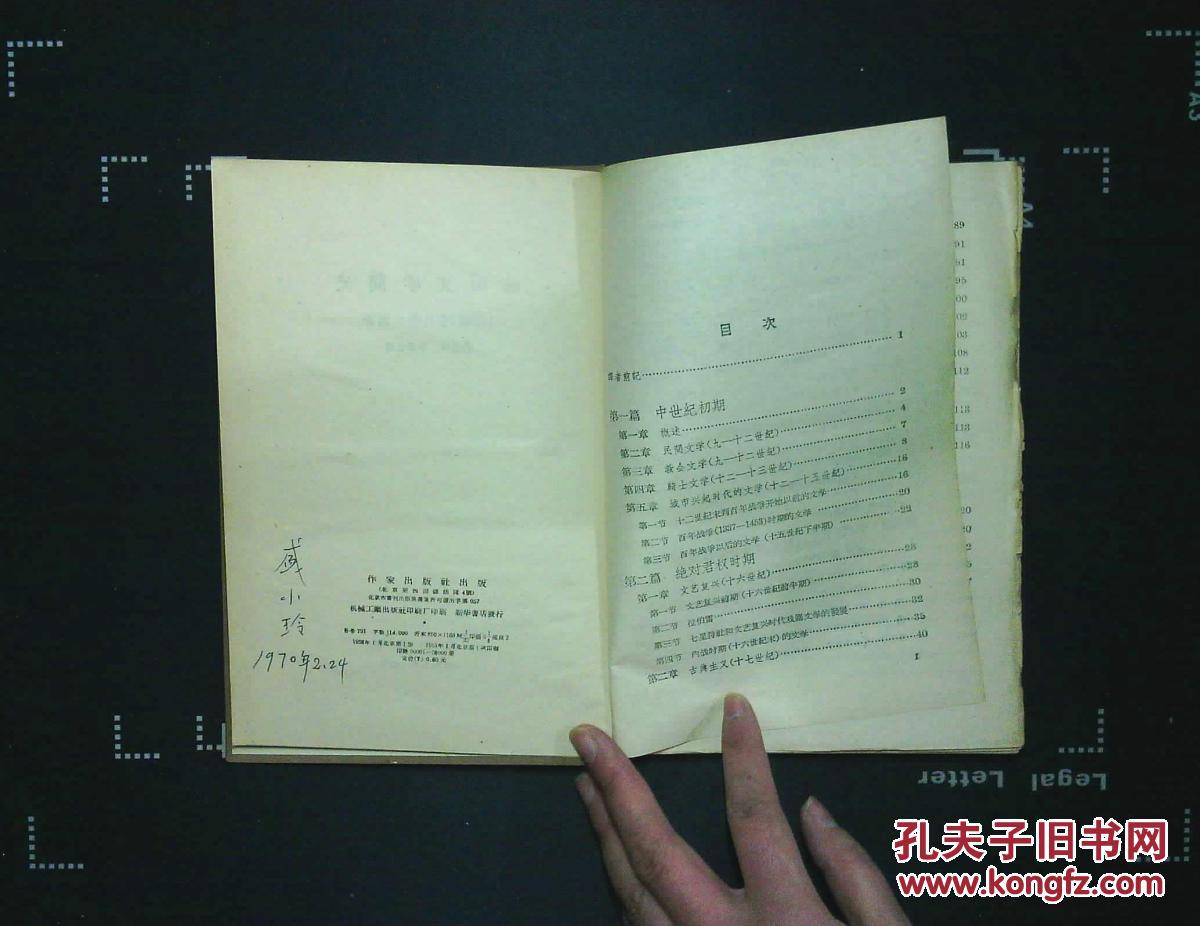 盛
小
玲
1970年2.24
作家出版社出版
机械工业出版社印刷厂印刷 新华书店发行
定价(7) 0.60元
目次
译者前记 1
第一篇 中世纪初期 2
第一章 概述 4
第二章 民间文学(九一十二世纪) 7
第三章 教会文学(九一十二世纪) 8
第四章 骑士文学(十二一十三世纪) 16
第五章 城市兴起时代的文学(十二一十五世纪) 16
第一节 十二世纪末到百年战争开始以前的文学 20
第二节 百年战争(1337—1453)时期的文学 22
第三节 百年战争以后的文学(十五世纪下半期)
第二篇 绝对君权时期 28
第一章 文艺复兴(十六世纪) 28
第一节 文艺复兴前期(十六世纪前半期)
第二节 拉伯雷 32
第三节 七星诗社和文艺复兴时代戏剧文学的发展 35
第四节 内战时期(十六世纪末)的文学 40
第二章 古典主义(十七世纪) 1
89
91
95
108
112
113
116
A3
Legal Letter
孔夫子旧书网
www.kongfz.com